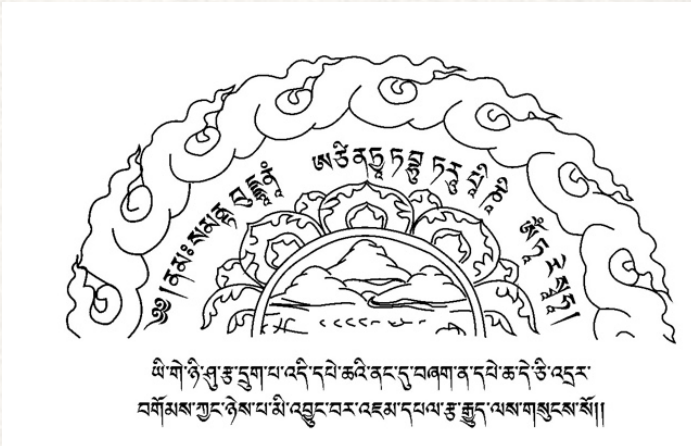 ༄། །ནམཿསམནྟ་བུདྡྷཱནཱཾ
ཡི་གེ་ཉི་ཤུ་རྩ་དྲུག་པ་འདི་དཔེ་ཆའི་ནང་དུ་བཞག་ན་དཔེ་ཆ་དེ་ཅི་འདྲར་
བགོམས་ཀྱང་ཉེས་པ་མི་འབྱུང་བར་འཇམ་དཔལ་རྩ་རྒྱུད་ལས་གསུངས་སོ།།